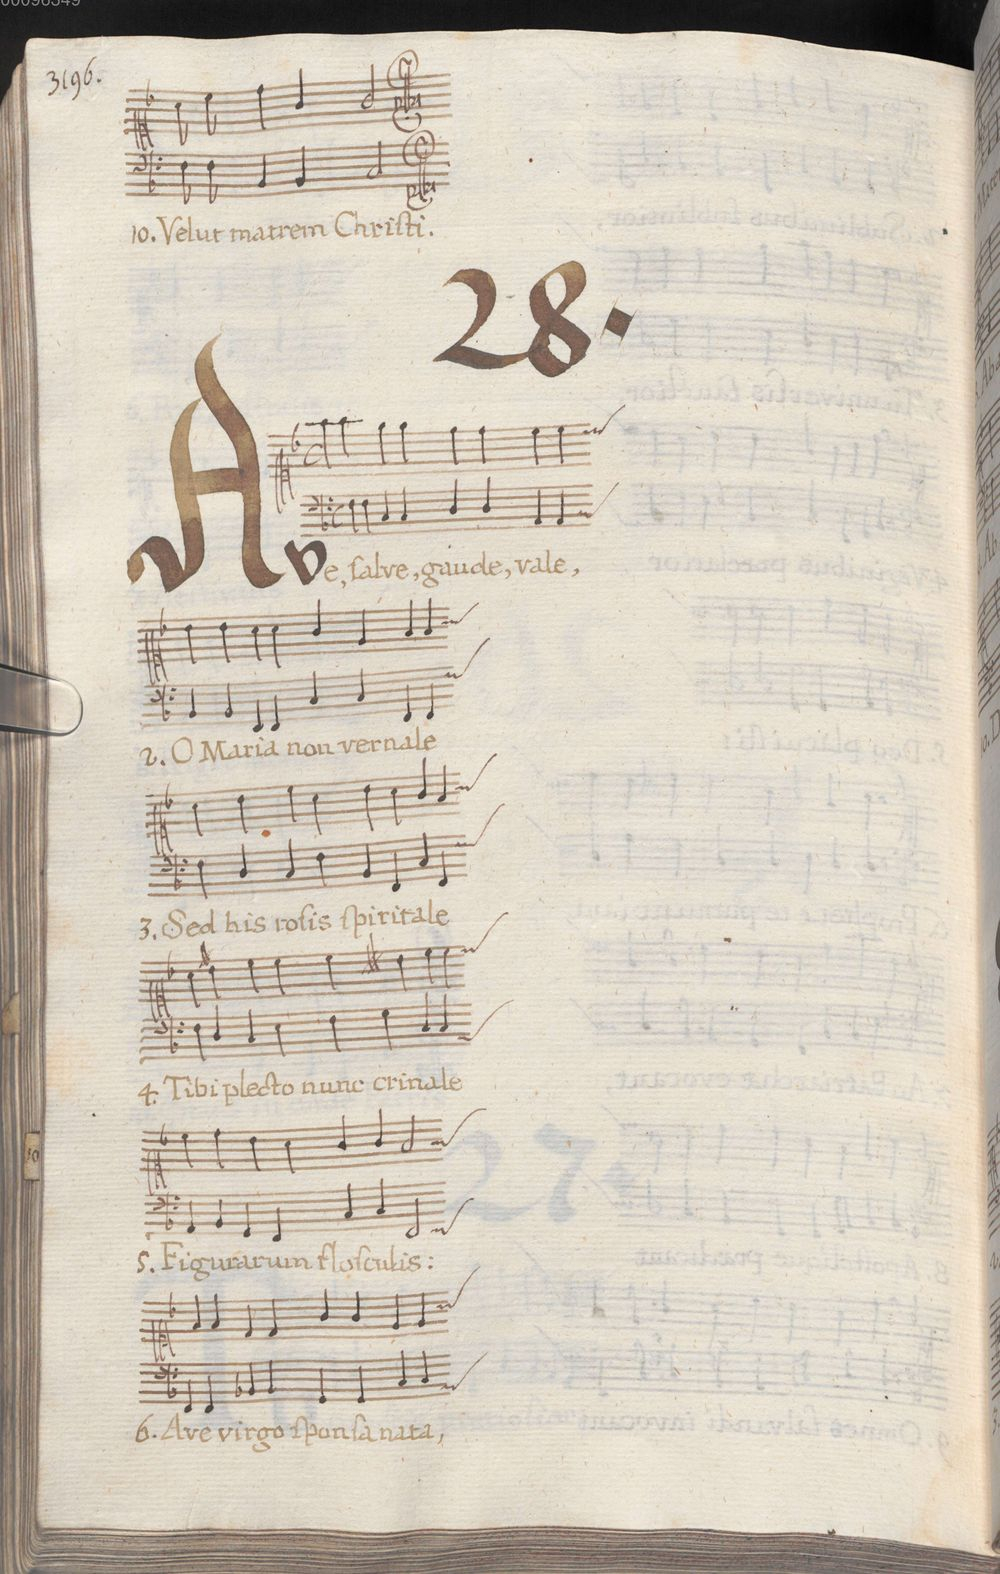 00098349
3196.
10. Velut matrem Chriſti.
28.
Ave, ſalve, gaude, vale,
2. O Maria non vernale
3. Sed his roſis ſpiritale
4. Tibi plecto nunc crinale
5. Figurarum floſculis:
6. Ave virgo ſponſa nata,